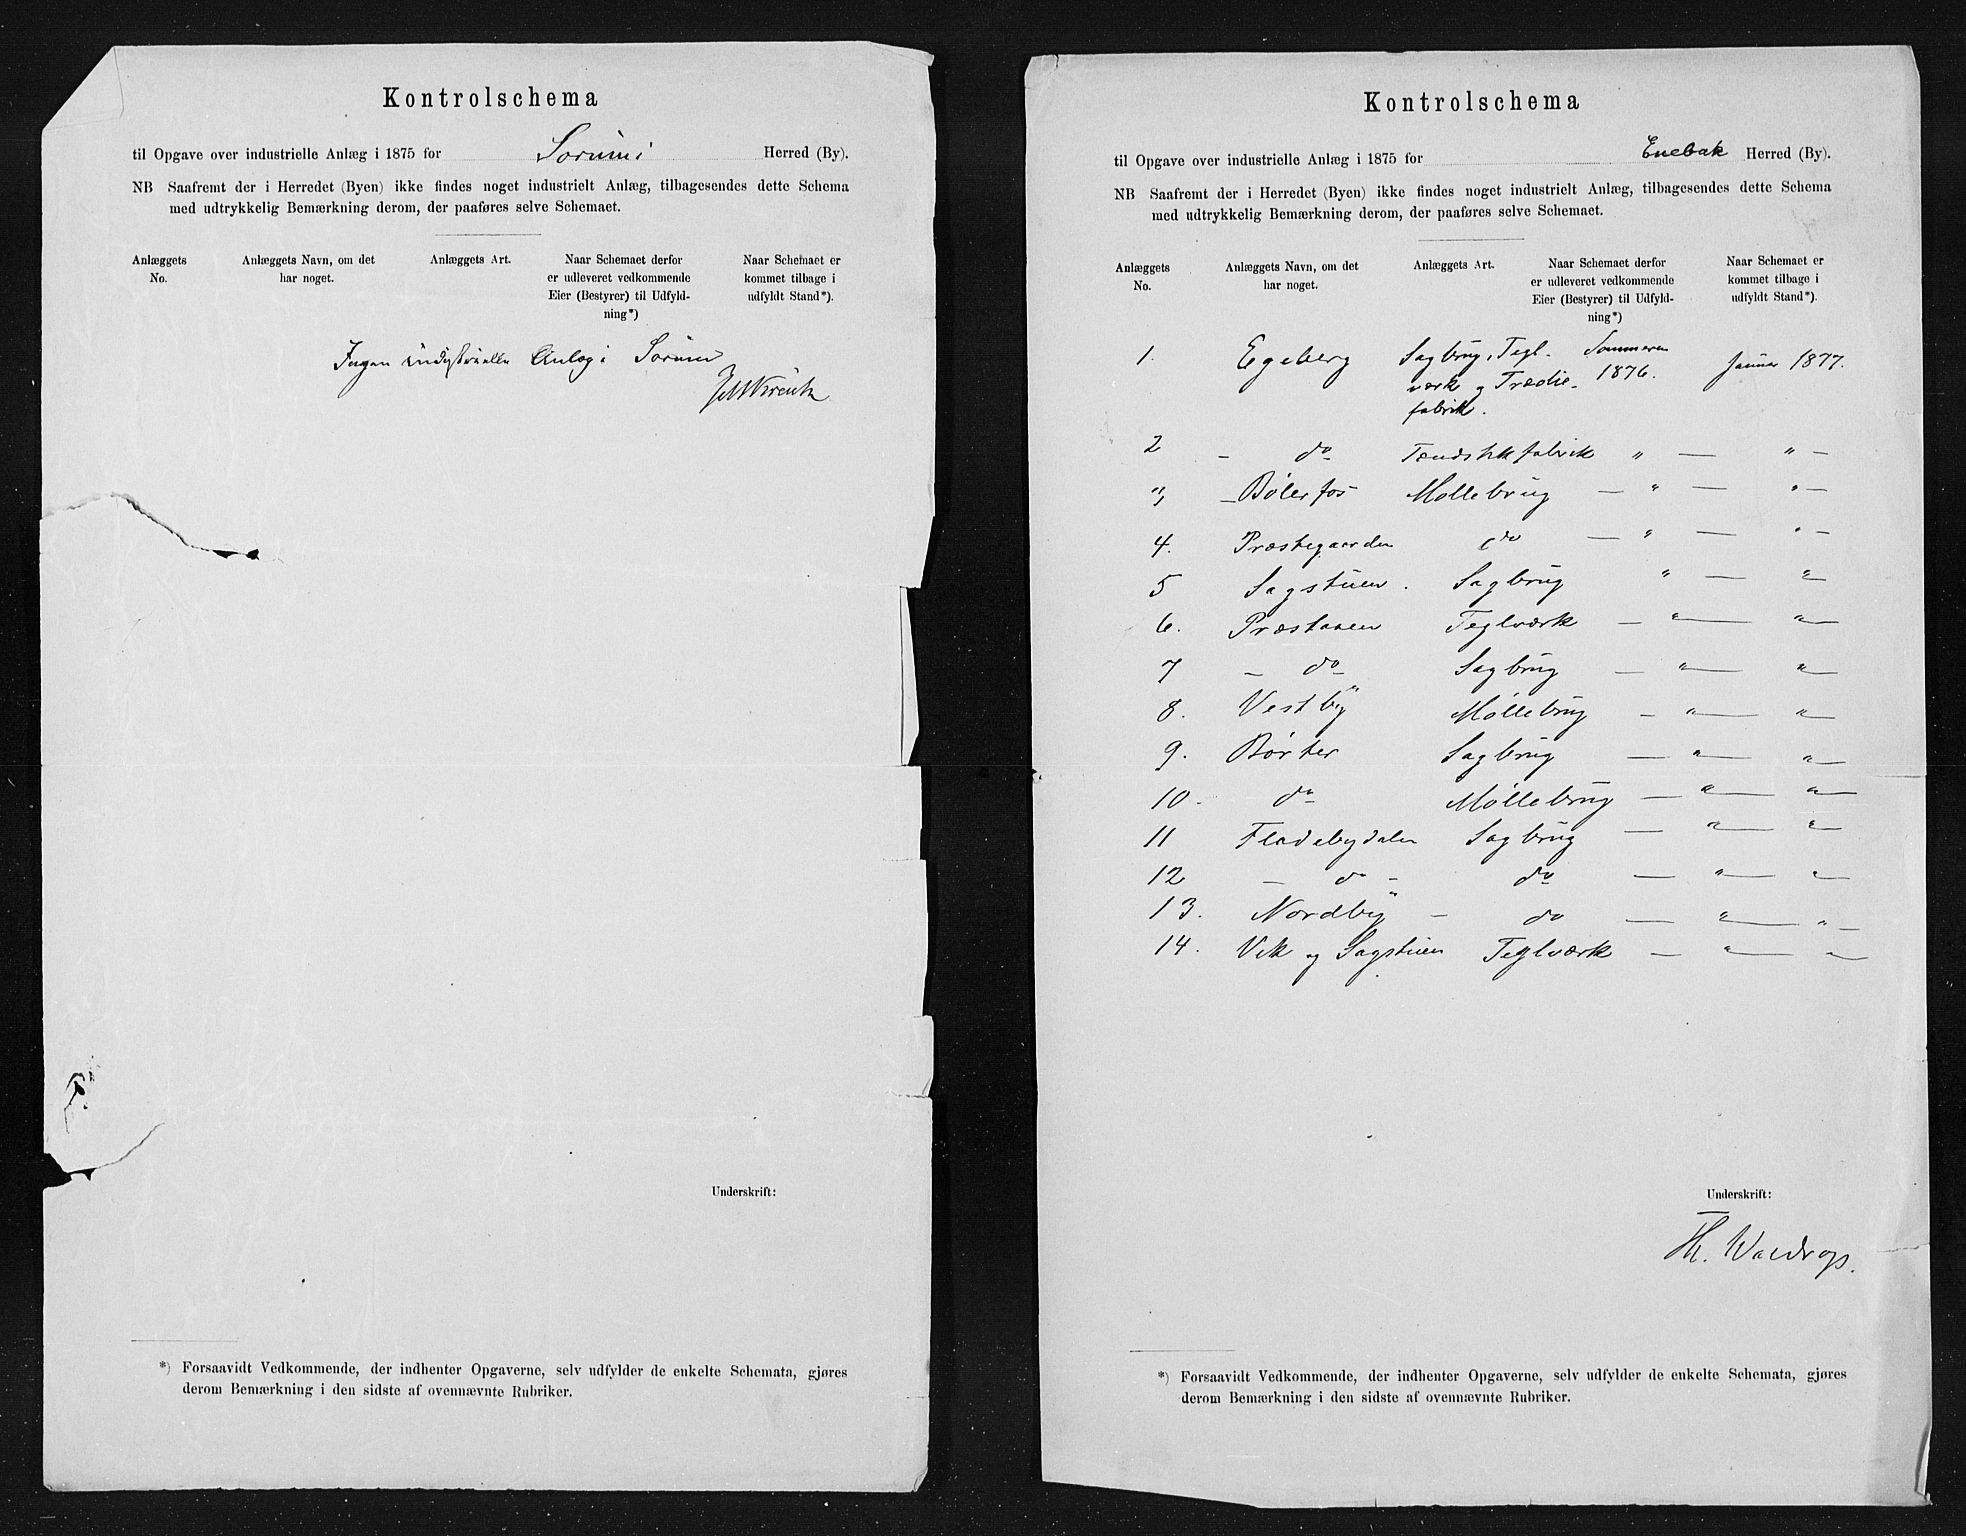 Kontrolschema
til Opgave over industrielle Anlæg i 1875 for Sørum Herred (By).
NB Saafremt der i Herredet (Byen) ikke findes noget industrielt Anlæg, tilbagesendes dette Schema
med udtrykkelig Bemærkning derom, der paaføres selve Schemaet.
Anlæggets
No.
Anlæggets Navn, om det
har noget.
Anlæggets Art.
Naar Schemaet derfor
er udleveret vedkommende
Eier (Bestyrer) til Udfyld-
ning*)
Naar Schemaet er
kommet tilbage i
udfyldt Stand*).
Ingen industrielle Anlæg i Sørum
Underskrift:
*) Forsaavidt Vedkommende, der indhenter Opgaverne, selv udfylder de enkelte Schemata, gjøres
derom Bemærkning i den sidste af ovennævnte Rubriker.
Kontrolschema
til Opgave over industrielle Anlæg i 1875 for Enebak Herred (By).
NB Saafremt der i Herredet (Byen) ikke findes noget industrielt Anlæg, tilbagesendes dette Schema
med udtrykkelig Bemærkning derom, der paaføres selve Schemaet.
Anlæggets
No.
Anlæggets Navn, om det
har noget.
Anlæggets Art.
Naar Schemaet derfor
er udleveret vedkommende
Eier (Bestyrer) til Udfyld-
ning*)
Naar Schemaet er
kommet tilbage i
udfyldt Stand*).
1. Egeberg Sagbrug, Tegl- Sommeren Januar 1877.
værk og Trædie- 1876.
fabrik.
2 — do — Tændstikfabrik " — " —
3 — Bølerfos Møllebrug — " — " —
4. Præstegaarden do — " — " —
5 Sagstuen. Sagbrug " — " —
6. Præstaaen Teglværk — " — " —
7 — do — Sagbrug — " — " —
8. Vestby Møllebrug — " — " —
9. Børter Sagbrug — " — " —
10. do Møllebrug — " — " —
11 Fladebydalen Sagbrug — " — " —
12 — do — do — " — " —
13. Nordby — do — " — " —
14. Vik og Sagstuen Teglværk — " — " —
Underskrift:
Th. Waldrop.
*) Forsaavidt Vedkommende, der indhenter Opgaverne, selv udfylder de enkelte Schemata, gjøres
derom Bemærkning i den sidste af ovennævnte Rubriker.